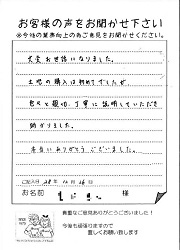 お客様の声をお聞かせ下さい
※今後の業務向上の為ご意見をお聞かせください。
大変お世話になりました。
土地の購入は初めてでしたが
色々と親切、丁寧に説明していただき
助かりました。
本当にありがとうございました。
ご記入日 28年 12月 16日
お名前 様
貴重なご意見ありがとうございました！
今後も頑張りますので
宜しくお願い致します